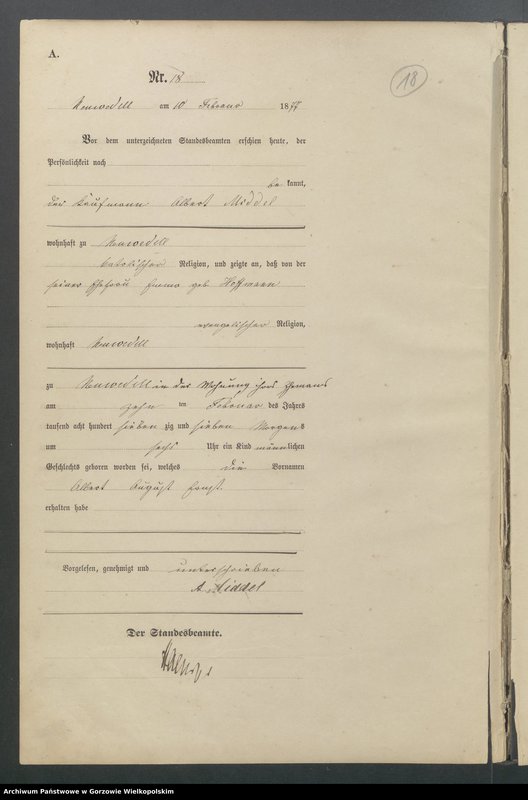 A.
Nr. 18
18
Neuwedell am 10 Februar 1877
Vor dem unterzeichneten Standesbeamten erschien heute, der
Persönlichkeit nach
be kannt,
der Kaufmann Albert Middel
wohnhaft zu Neuwedell
katolischer Religion, und zeigte an, daß von der
seiner Ehefrau Emma geb Hoffmann
evangelischer Religion,
wohnhaft Neuwedell
zu Neuwedell in der Wohnung ihres Ehemans
am zehn ten Februar des Jahres
tausend acht hundert sieben zig und sieben Morgens
um sechs Uhr ein Kind männlichen
Geschlechts geboren worden sei, welches die Vornamen
Albert August Ernst
erhalten habe
Vorgelesen, genehmigt und unterschrieben
A. Middel
Der Standesbeamte.
Archiwum Państwowe w Gorzowie Wielkopolskim